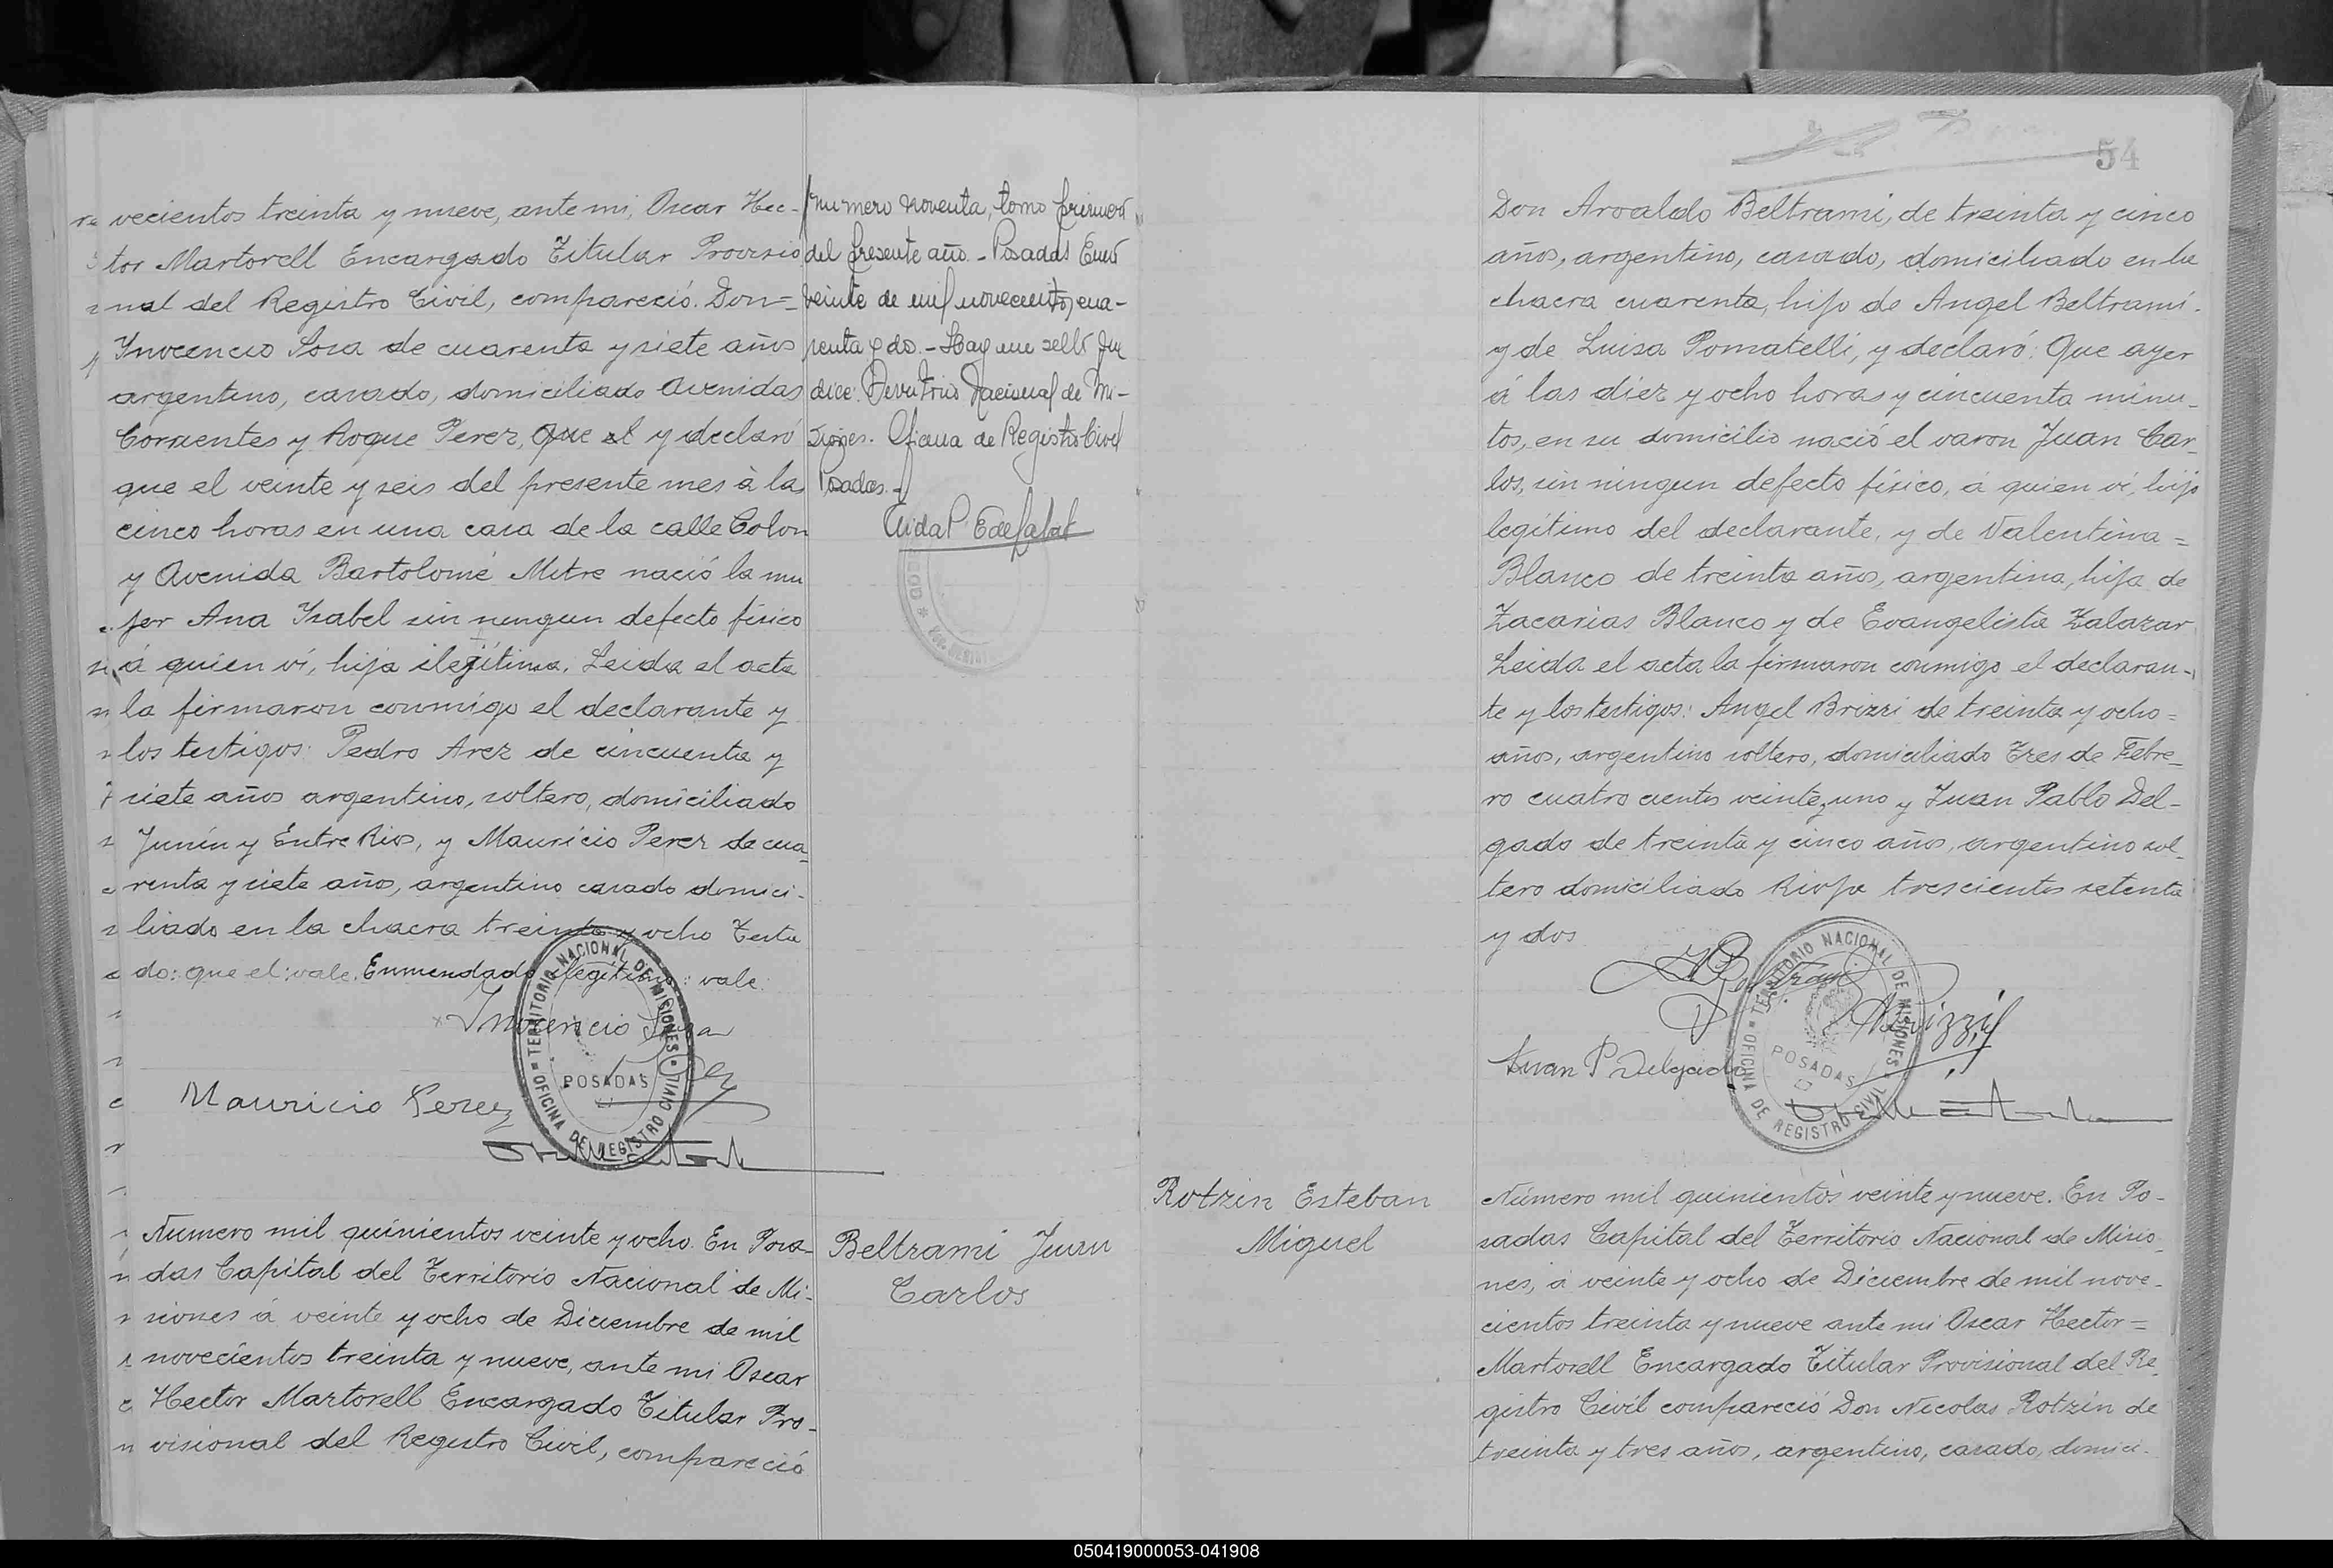 vecientos treinta y nueve, ante mi, Oscar Hec-
tor Martorell Encargado Titular Provisio
nal del Registro Civil, compareció. Don=
Inocencio Sosa de cuarenta y siete años
argentino, casado, domiciliado Avenidas
Corrientes y Roque Perez, que el y declaró
que el veinte y seis del presente mes à las
cinco horas en una casa de la calle Colon
y Avenida Bartolomé Mitre nació la mu
jer Ana Isabel sin ningun defecto físico
á quien ví, hija ilegítima. Leida el acta
la firmaron conmigo el declarante y
los testigos: Pedro Arez de cincuenta y
siete años argentino, soltero, domiciliado
Junín y Entre Rios, y Mauricio Perez de cua_
renta y siete años, argentino casado domici-
liado en la chacra treinta y ocho Testa
do: que el: vale. Enmendado ilegítima: vale.
Inocencio Sosa
Mauricio Perez
TERRITORIO NACIONAL DE MISIONES
POSADAS
OFICINA DE REGISTRO CIVIL
Número mil quinientos veinte y ocho. En Posa_
das Capital del Territorio Nacional de Mi-
siones á veinte y ocho de Diciembre de mil
novecientos treinta y nueve, ante mi Oscar
Hector Martorell Encargado Titular Pro-
visional del Registro Civil, compareció
numero noventa, tomo primero
del presente año.- Posadas Enero
veinte de mil novecientos cua-
renta y dos.- Hay un sello que
dice: Territorio Nacional de Mi-
siones. Oficina de Registro Civil
Posadas.-
Beltrami Juan
Carlos
54
Don Arvaldo Beltrami, de treinta y cinco
años, argentino, casado, domiciliado en la
chacra cuarenta, hijo de Angel Beltrami.
y de Luisa Pomatelli, y declaró: Que ayer
á las diez y ocho horas y cincuenta minu-
tos, en su domicilio nació el varon Juan Car_
los, sin ningun defecto físico, á quien ví, hijo
legítimo del declarante, y de Valentina =
Blanco de treinta años, argentina, hija de
Zacarias Blanco y de Evangelista Zalazar
Leida el acta la firmaron conmigo el declaran-
te y los testigos: Angel Brizzi de treinta y ocho=
años, argentino soltero, domiciliado Tres de Febre_
ro cuatro cientos veinte y uno y Juan Pablo Del-
gado de treinta y cinco años, argentino sol_
tero domiciliado Rioja trescientos setenta
y dos
Juan P Delgado
TERRITORIO NACIONAL DE MISIONES
POSADAS
OFICINA DE REGISTRO CIVIL
Rotzin Esteban
Miguel
Número mil quinientos veinte y nueve. En Po-
sadas Capital del Territorio Nacional de Misio_
nes, á veinte y ocho de Diciembre de mil nove-
cientos treinta y nueve ante mi Oscar Hector=
Martorell Encargado Titular Provisional del Re_
gistro Civil compareció Don Nicolas Rotzin de
treinta y tres años, argentino, casado, domici-
050419000053-041908